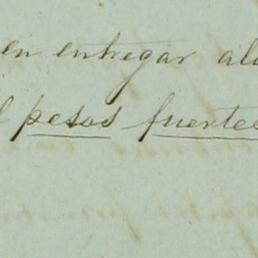 en entregar al
pesos fuertes